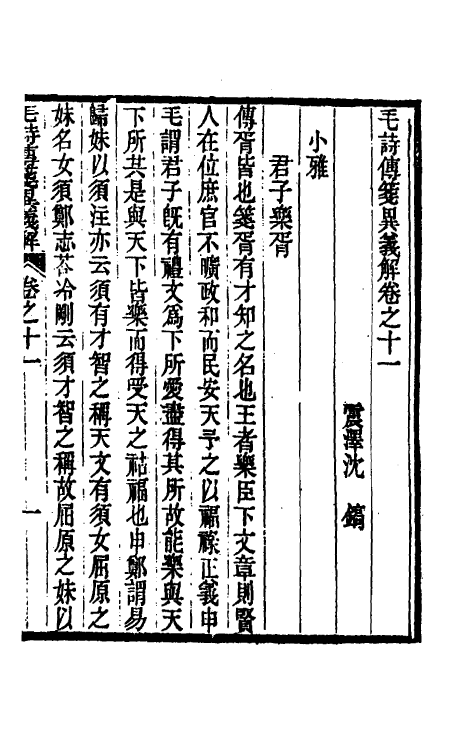 毛詩傳箋異義解卷之十一
震澤沈鎬
小雅
君子樂胥
傳胥皆也箋胥有才知之名也王者樂臣下文章則賢
人在位庶官不曠政和而民安天予之以福祿正義申
毛謂君子旣有禮文爲下所愛盡得其所故能樂與天
下所共是與天下皆樂而得受天之祜福也申鄭謂易
歸妹以須注亦云須有才智之稱天文有須女屈原之
妹名女須鄭志荅冷剛云須才智之稱故屈原之妹以
毛詩傳箋異義解 卷之十一 一